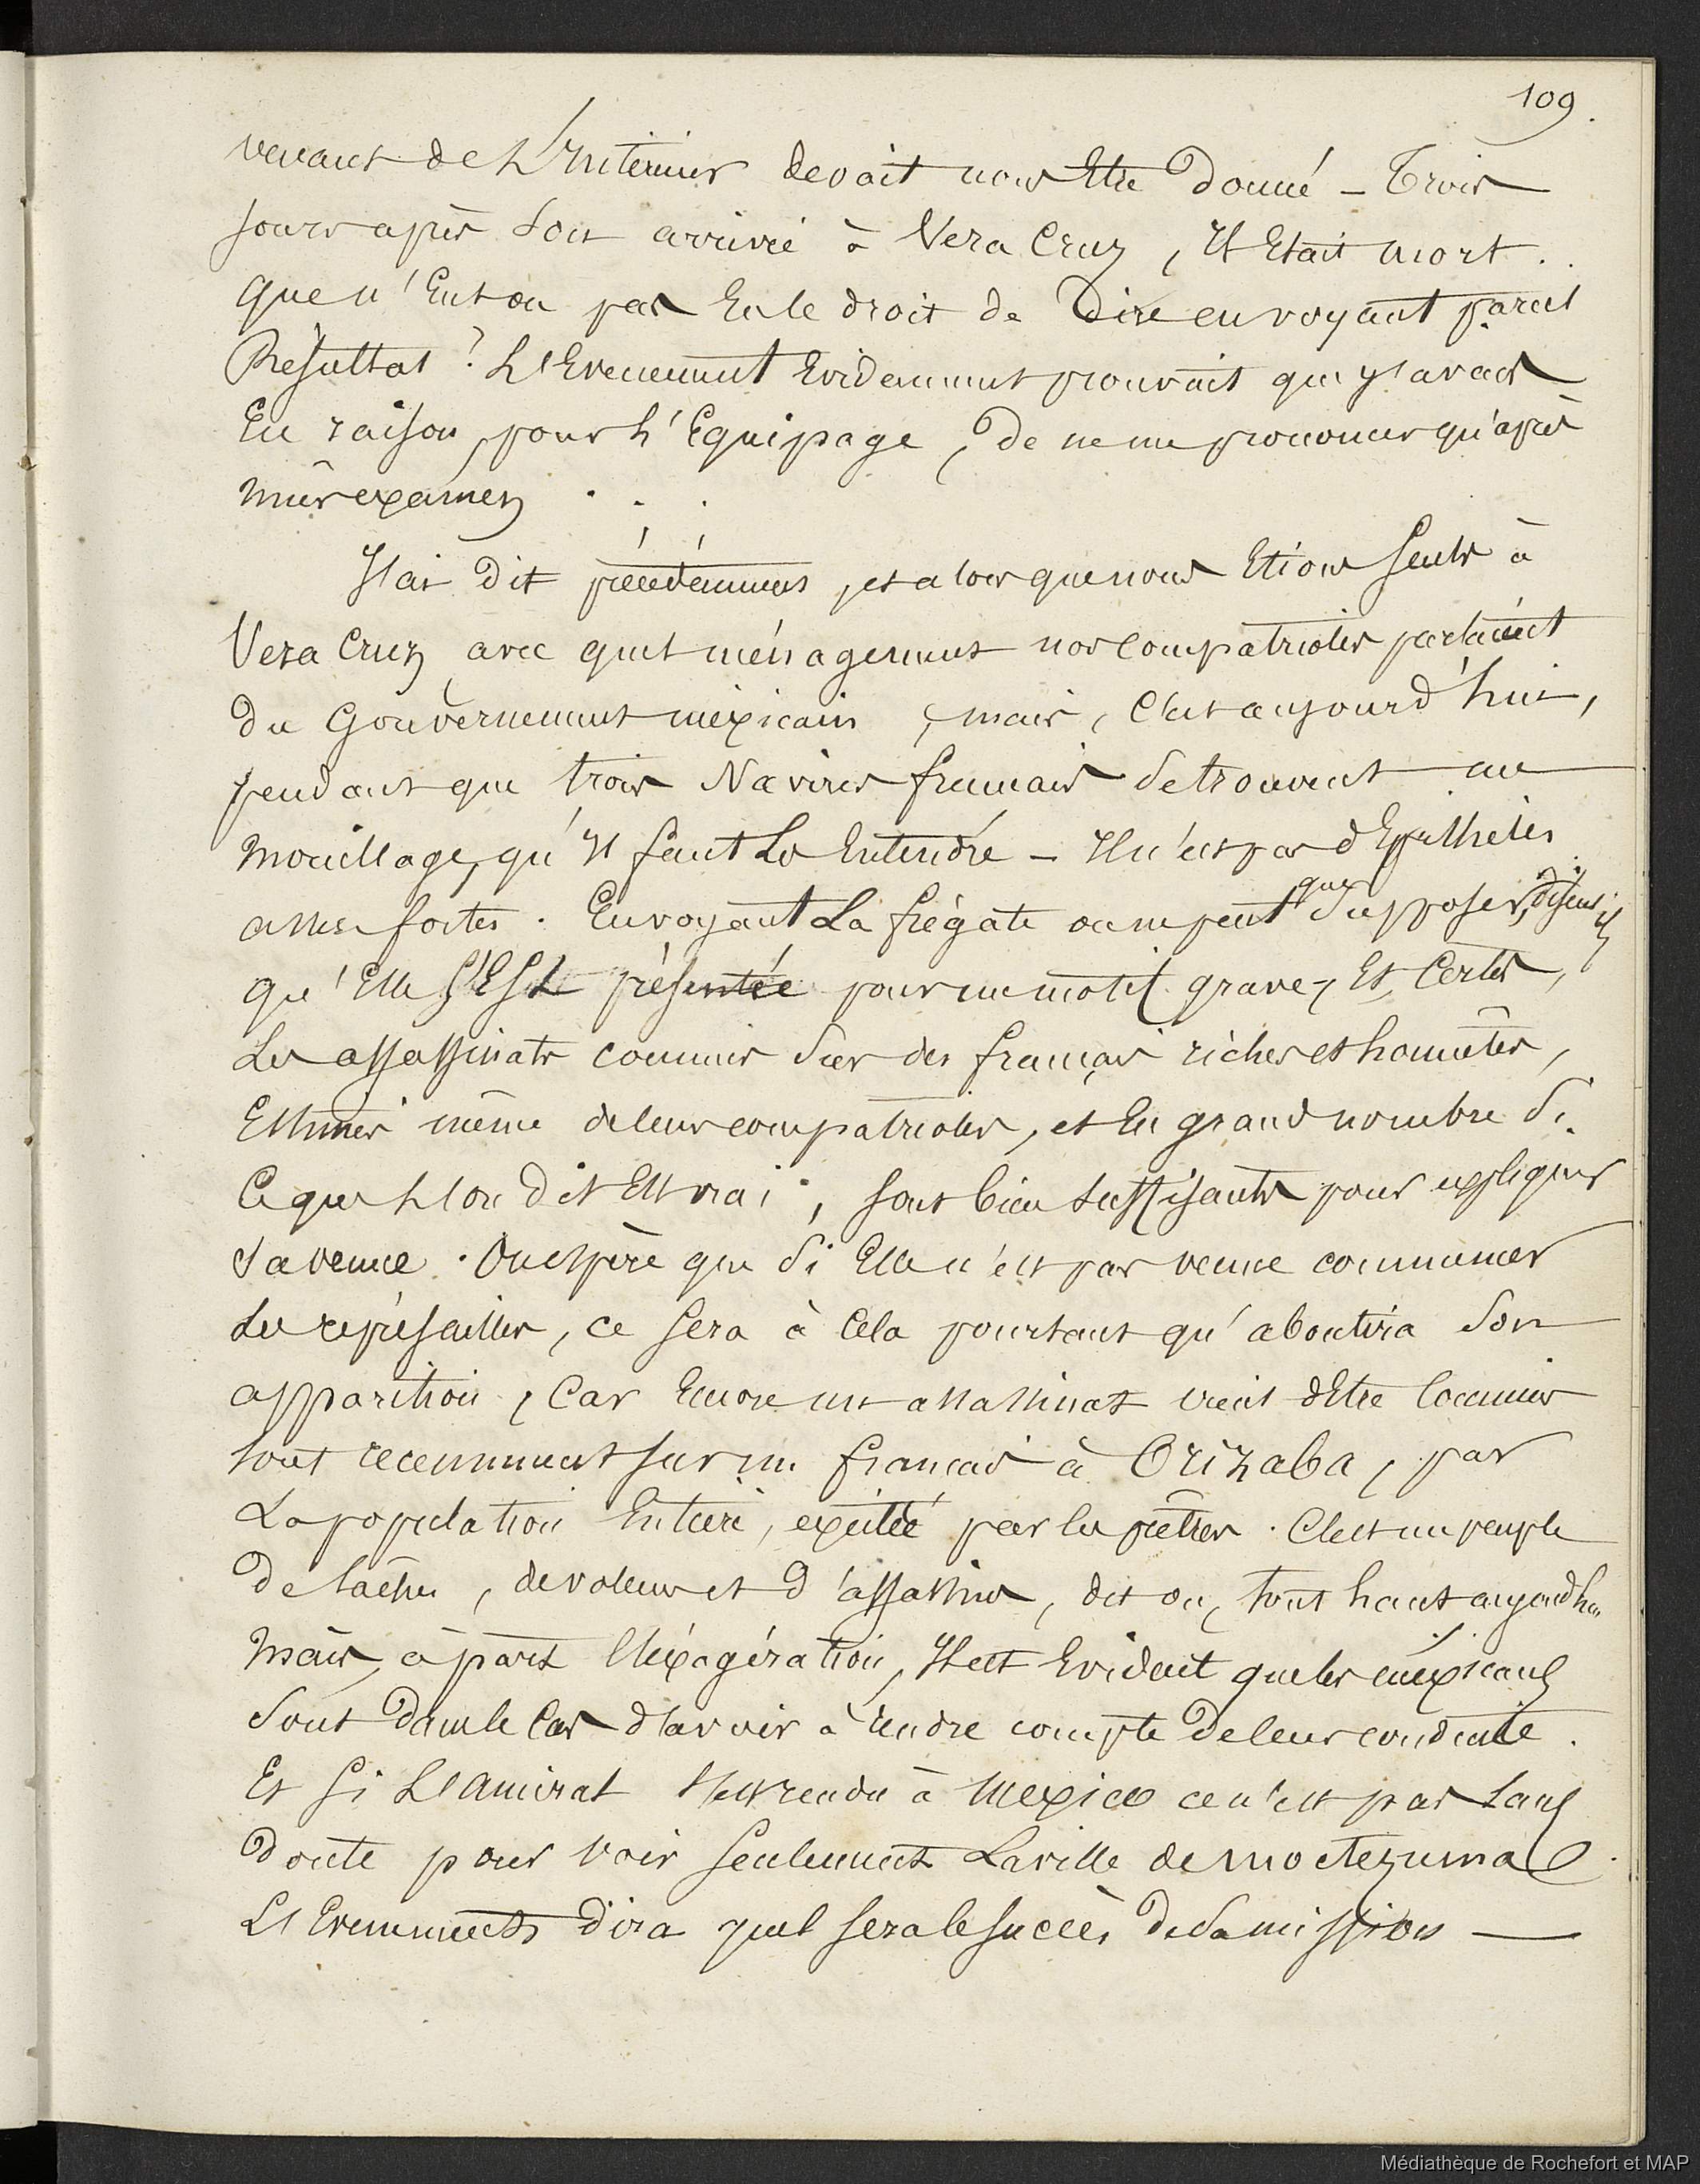 109.
venant de L'Intérieur devait nous Etre Donné – Trois
Jours après son arrivée à Vera Cruz, Il Etait mort..
Que n'Eut on pas Eu le droit de Dire en voyant pareil
Résultat ? L'Evenement Evidemment prouvait que j'avais
Eu raison, pour L'Equipage, De ne me prononcer qu'après
mûr examen . . .
J'ai Dit précédemment, et alors que nous Etions seuls à
Vera Cruz avec quel ménagement nos compatriotes parlaient
Du Gouvernement mexicain, mais, C'est aujourd'hui,
pendant que trois Navires français se trouvent au
Mouillage, qu'Il faut Les Entendre – Il n'est pas d'Epithètes
assez fortes. En voyant La frégate on ne peut que supposer, disent ils
qu'Elle s'Est présentée pour un motif grave, Et, Certes,
Les assassinats commis sur des français riches et honnêtes,
Estimés même de leurs compatriotes, et En grand nombre si
Ce que L'on Dit Est vrai, sont bien suffisants pour expliquer
sa venue. On espère que si Elle n'est pas venue commencer
Les représailles, ce sera à Cela pourtant qu'aboutira son
apparition, Car Encore un assassinat vient d'Etre Commis
tout recemment sur un français à Orizaba, par
La population Entière, excitée par les prêtres. C'est un peuple
De lâches, de voleurs et D'assassins, dit on, tout haut aujourdhui
Mais, à part l'éxagération, Il est Evident que les méxicains
sont dans le Cas d'avoir à rendre compte De leur conduite.
Et si L'amiral s'est rendu à Mexico ce n'est pas sans
Doute pour voir seulement La ville de moctezuma.
L'Evenements Dira quel sera le succès De sa mission —
Médiathèque de Rochefort et MAP